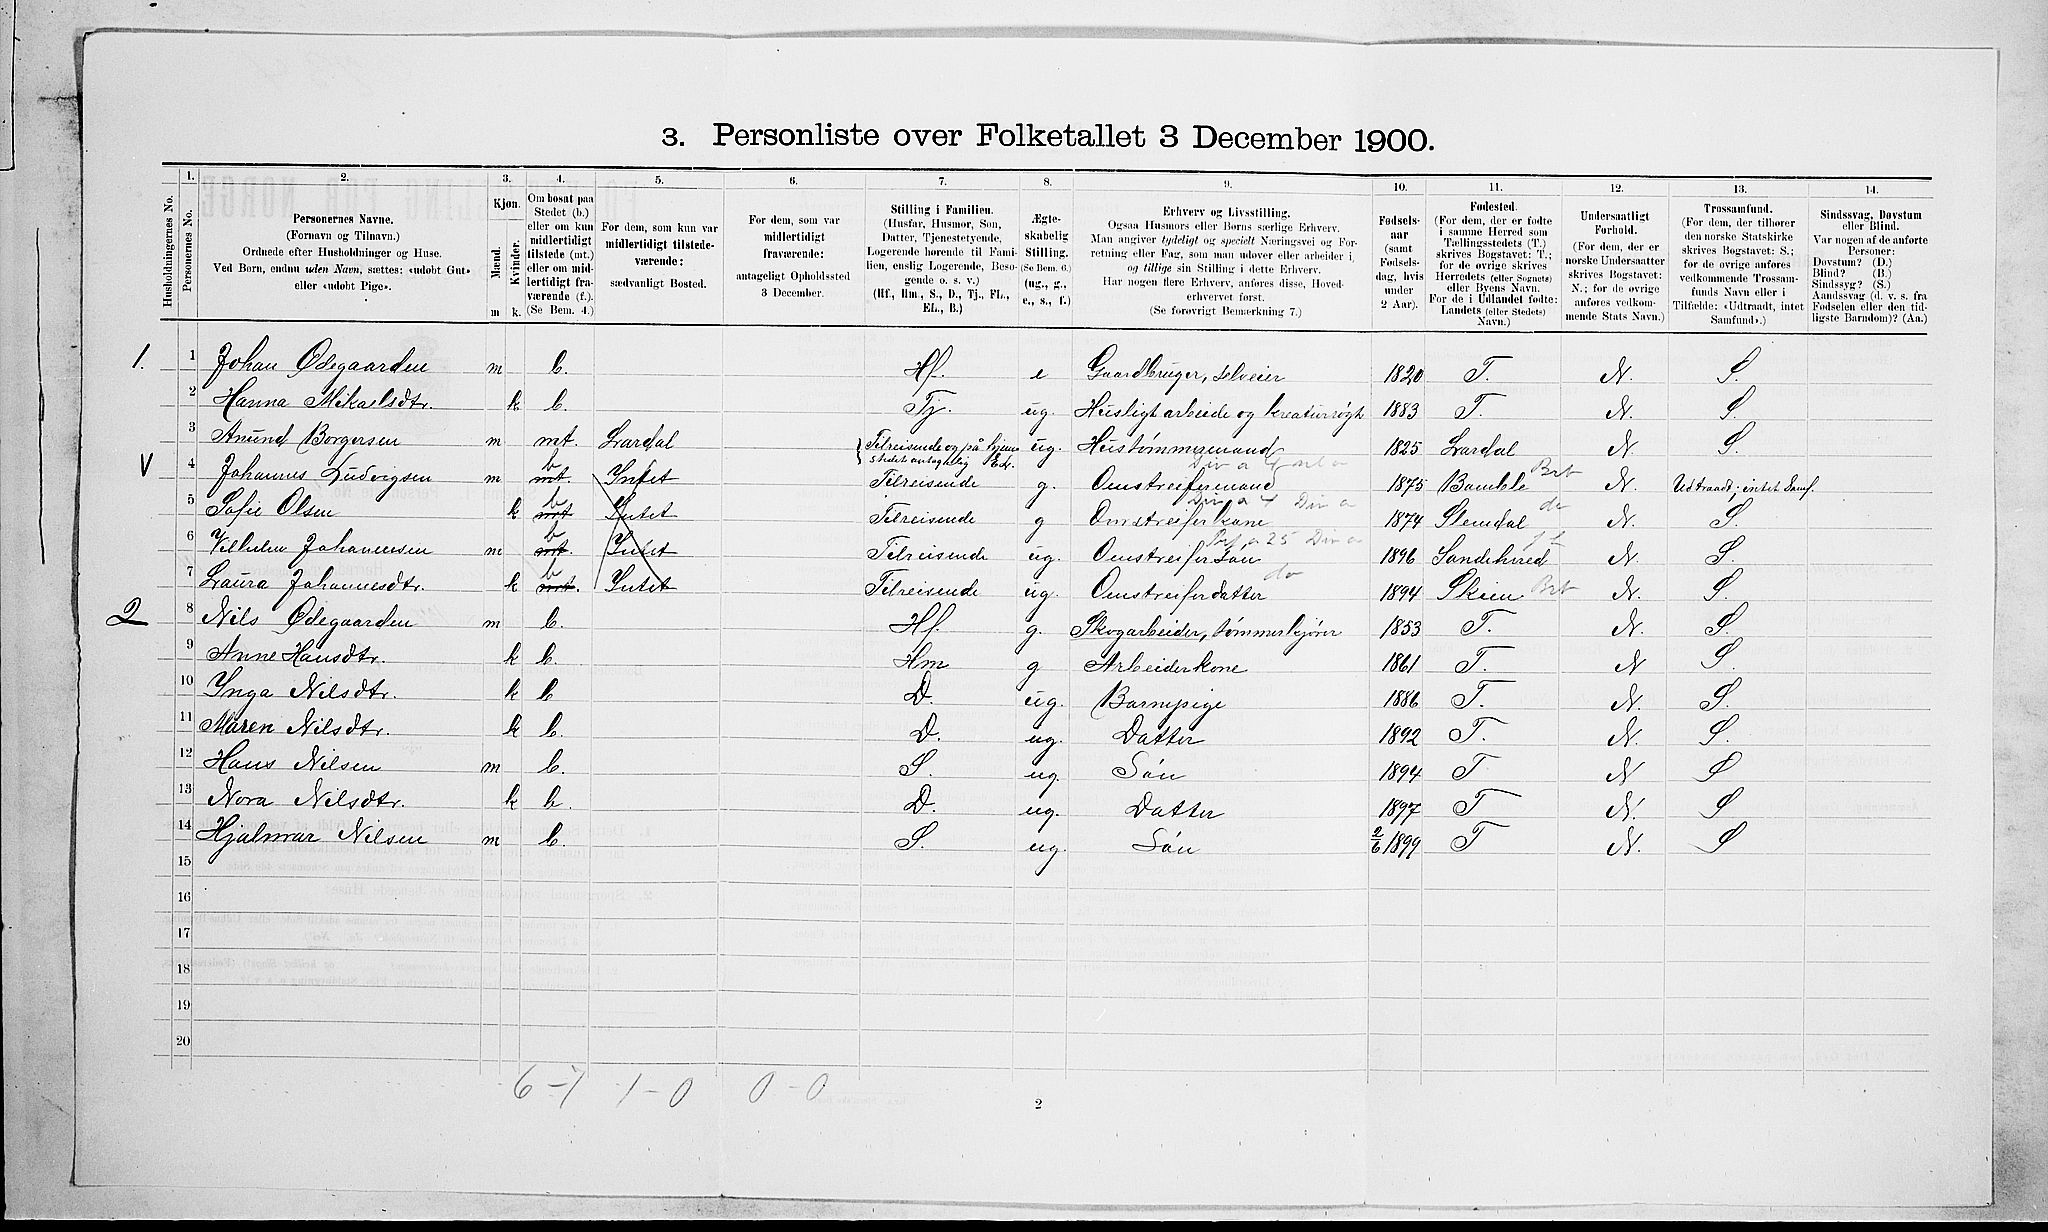 3. Personliste over Folketallet 3 December 1900.
1. 2. 3. 4. 5. 6. 7. 8. 9. 10. 11. 12. 13. 14.
Husholdningernes No.
Personernes No.
Personernes Navne.
(Fornavn og Tilnavn.)
Ordnede efter Husholdninger og Huse.
Ved Børn, endnu uden Navn, sættes: «udøbt Gut»
eller «udøbt Pige».
Kjøn.
Mænd.
Kvinder.
m k.
Om bosat paa
Stedet (b.)
eller om kun
midlertidigt
tilstede (mt.)
eller om mid-
lertidigt fra-
værende (f.).
(Se Bem. 4.)
For dem, som kun var
midlertidigt tilstede-
værende:
sædvanligt Bosted.
For dem, som var
midlertidigt
fraværende:
antageligt Opholdssted
3 December.
Stilling i Familien.
(Husfar, Husmor, Søn,
Datter, Tjenestetyende,
Logerende hørende til Fami-
lien, enslig Logerende, Besø-
gende o. s. v.)
(Hf., Hm., S., D., Tj., FL.,
EL., B.)
Ægte-
skabelig
Stilling.
(Se Bem. 6.)
(ug., g.,
e., s., f.)
Erhverv og Livsstilling.
Ogsaa Husmors eller Børns særlige Erhverv.
Man angiver tydeligt og specielt Næringsvei og For-
retning eller Fag, som man udøver eller arbeider i,
og tillige sin Stilling i dette Erhverv.
Har nogen flere Erhverv, anføres disse, Hoved-
erhvervet først.
(Se forøvrigt Bemærkning 7.)
Fødsels-
aar
(samt
Fødsels-
dag, hvis
under
2 Aar).
Fødested.
(For dem, der er fødte
i samme Herred som
Tællingsstedets (T.)
skrives Bogstavet: T.;
for de øvrige skrives
Herredets (eller Sognets)
eller Byens Navn.
For de i Udlandet fødte:
Landets (eller Stedets)
Navn.)
Undersaatligt
Forhold.
(For dem, der er
norske Undersaatter
skrives Bogstavet:
N.; for de øvrige
anføres vedkom-
mende Stats Navn.)
Trossamfund.
(For dem, der tilhører
den norske Statskirke
skrives Bogstavet: S.;
for de øvrige anføres
vedkommende Trossam-
funds Navn eller i
Tilfælde: «Udtraadt, intet
Samfund».)
Sindssvag, Døvstum
eller Blind.
Var nogen af de anførte
Personer:
Døvstum? (D.)
Blind? (B.)
Sindssyg? (S.)
Aandssvag (d. v. s. fra
Fødselen eller den tid-
ligste Barndom)? (Aa.)
1. 1 Johan Ødegaarden m b. Hf. e Gaardbruger, selveier 1820 T. N. S.
2 Hanna Mikaelsdtr. k b. Tj. ug. Husligt arbeide og kreaturrøgt 1883 T. N. S.
3 Anund Borgersen m mt. Lardal Tilreisende og på hjem- ug. Hustømmermand 1825 Lardal N. S.
stedet antagelig EL.
V 4 Johannes Ludvigsen m mt. b Intet Tilreisende g. Omstreifermand 1875 Bamble N. Udtraadt; intet Samf.
5 Sofie Olsen k mt b Intet Tilreisende g Omstreiferkone 1874 Slemdal N. S.
6 Vilhelm Johannesen m mt. b Intet Tilreisende ug. Omstreifersøn 1896 Sandehered N. S.
7 Laura Johannesdtr. k mt. b Intet Tilreisende ug. Omstreiferdatter do 1894 Skien N. S.
2 8 Nils Ødegaarden m b. Hf. g. Skogarbeider, tømmerkjører 1853 T. N. S.
9 Anne Hansdtr. k b. Hm g Arbeiderkone 1861 T. N S.
10 Inga Nilsdtr. k b D. ug. Barnepige 1886 T. N. S.
11 Maren Nilsdtr. k b. D. ug. Datter 1892 T. N. S.
12 Hans Nilsen m b. S. ug. Søn 1894 T N S
13 Nora Nilsdtr. k b. D. ug. Datter 1897 T N. S
14 Hjalmar Nilsen m b. S. ug. Søn 2/6 1899 T N. S
15
16
17
18
19
20
6-7 1-0 0-0
2